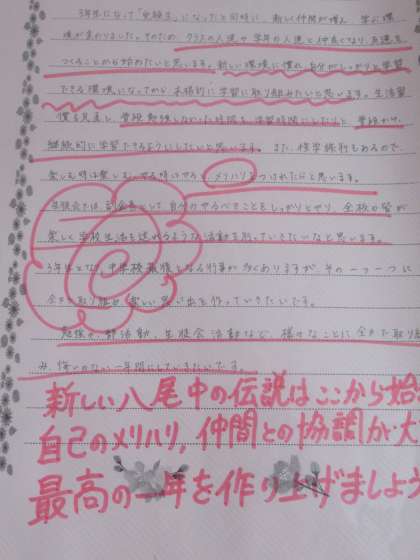 3年生になって「受験生」になったと同時に、新しい仲間が増え、学ぶ環
境が変わりました。そのため、クラスの人達や学年の人達と仲良くなり、友達を
つくることから始めたいと思います。新しい環境に慣れ、自分がしっかりと学習
できる環境になってから、本格的に学習に取り組みたいと思います。生活習
慣を見直し、普段勉強しなかった時間を学習時間にしたりと
継続的に学習できるようにしたいと思います。また、修学旅行もあるので、
楽しむ時は楽しむ、やる時はやると、メリハリをつけれたらと思います。
生徒会では、副会長として、自分のやるべきことをしっかりとやり、全校の皆が
楽しく学校生活を送れるような活動を行っていきたいなと思います。
3年生となり、中学校最後となる行事が多くありますが、その一つ一つに
全力で取り組み、楽しい思い出を作っていきたいです。
勉強や、部活動、生徒会活動など、様々なことに全力で取り組
み、悔いのない一年間にしていきたいです。
新しい八尾中の伝説はここから始
自己のメリハリ，仲間との協調が大
最高の一年を作り上げましょう